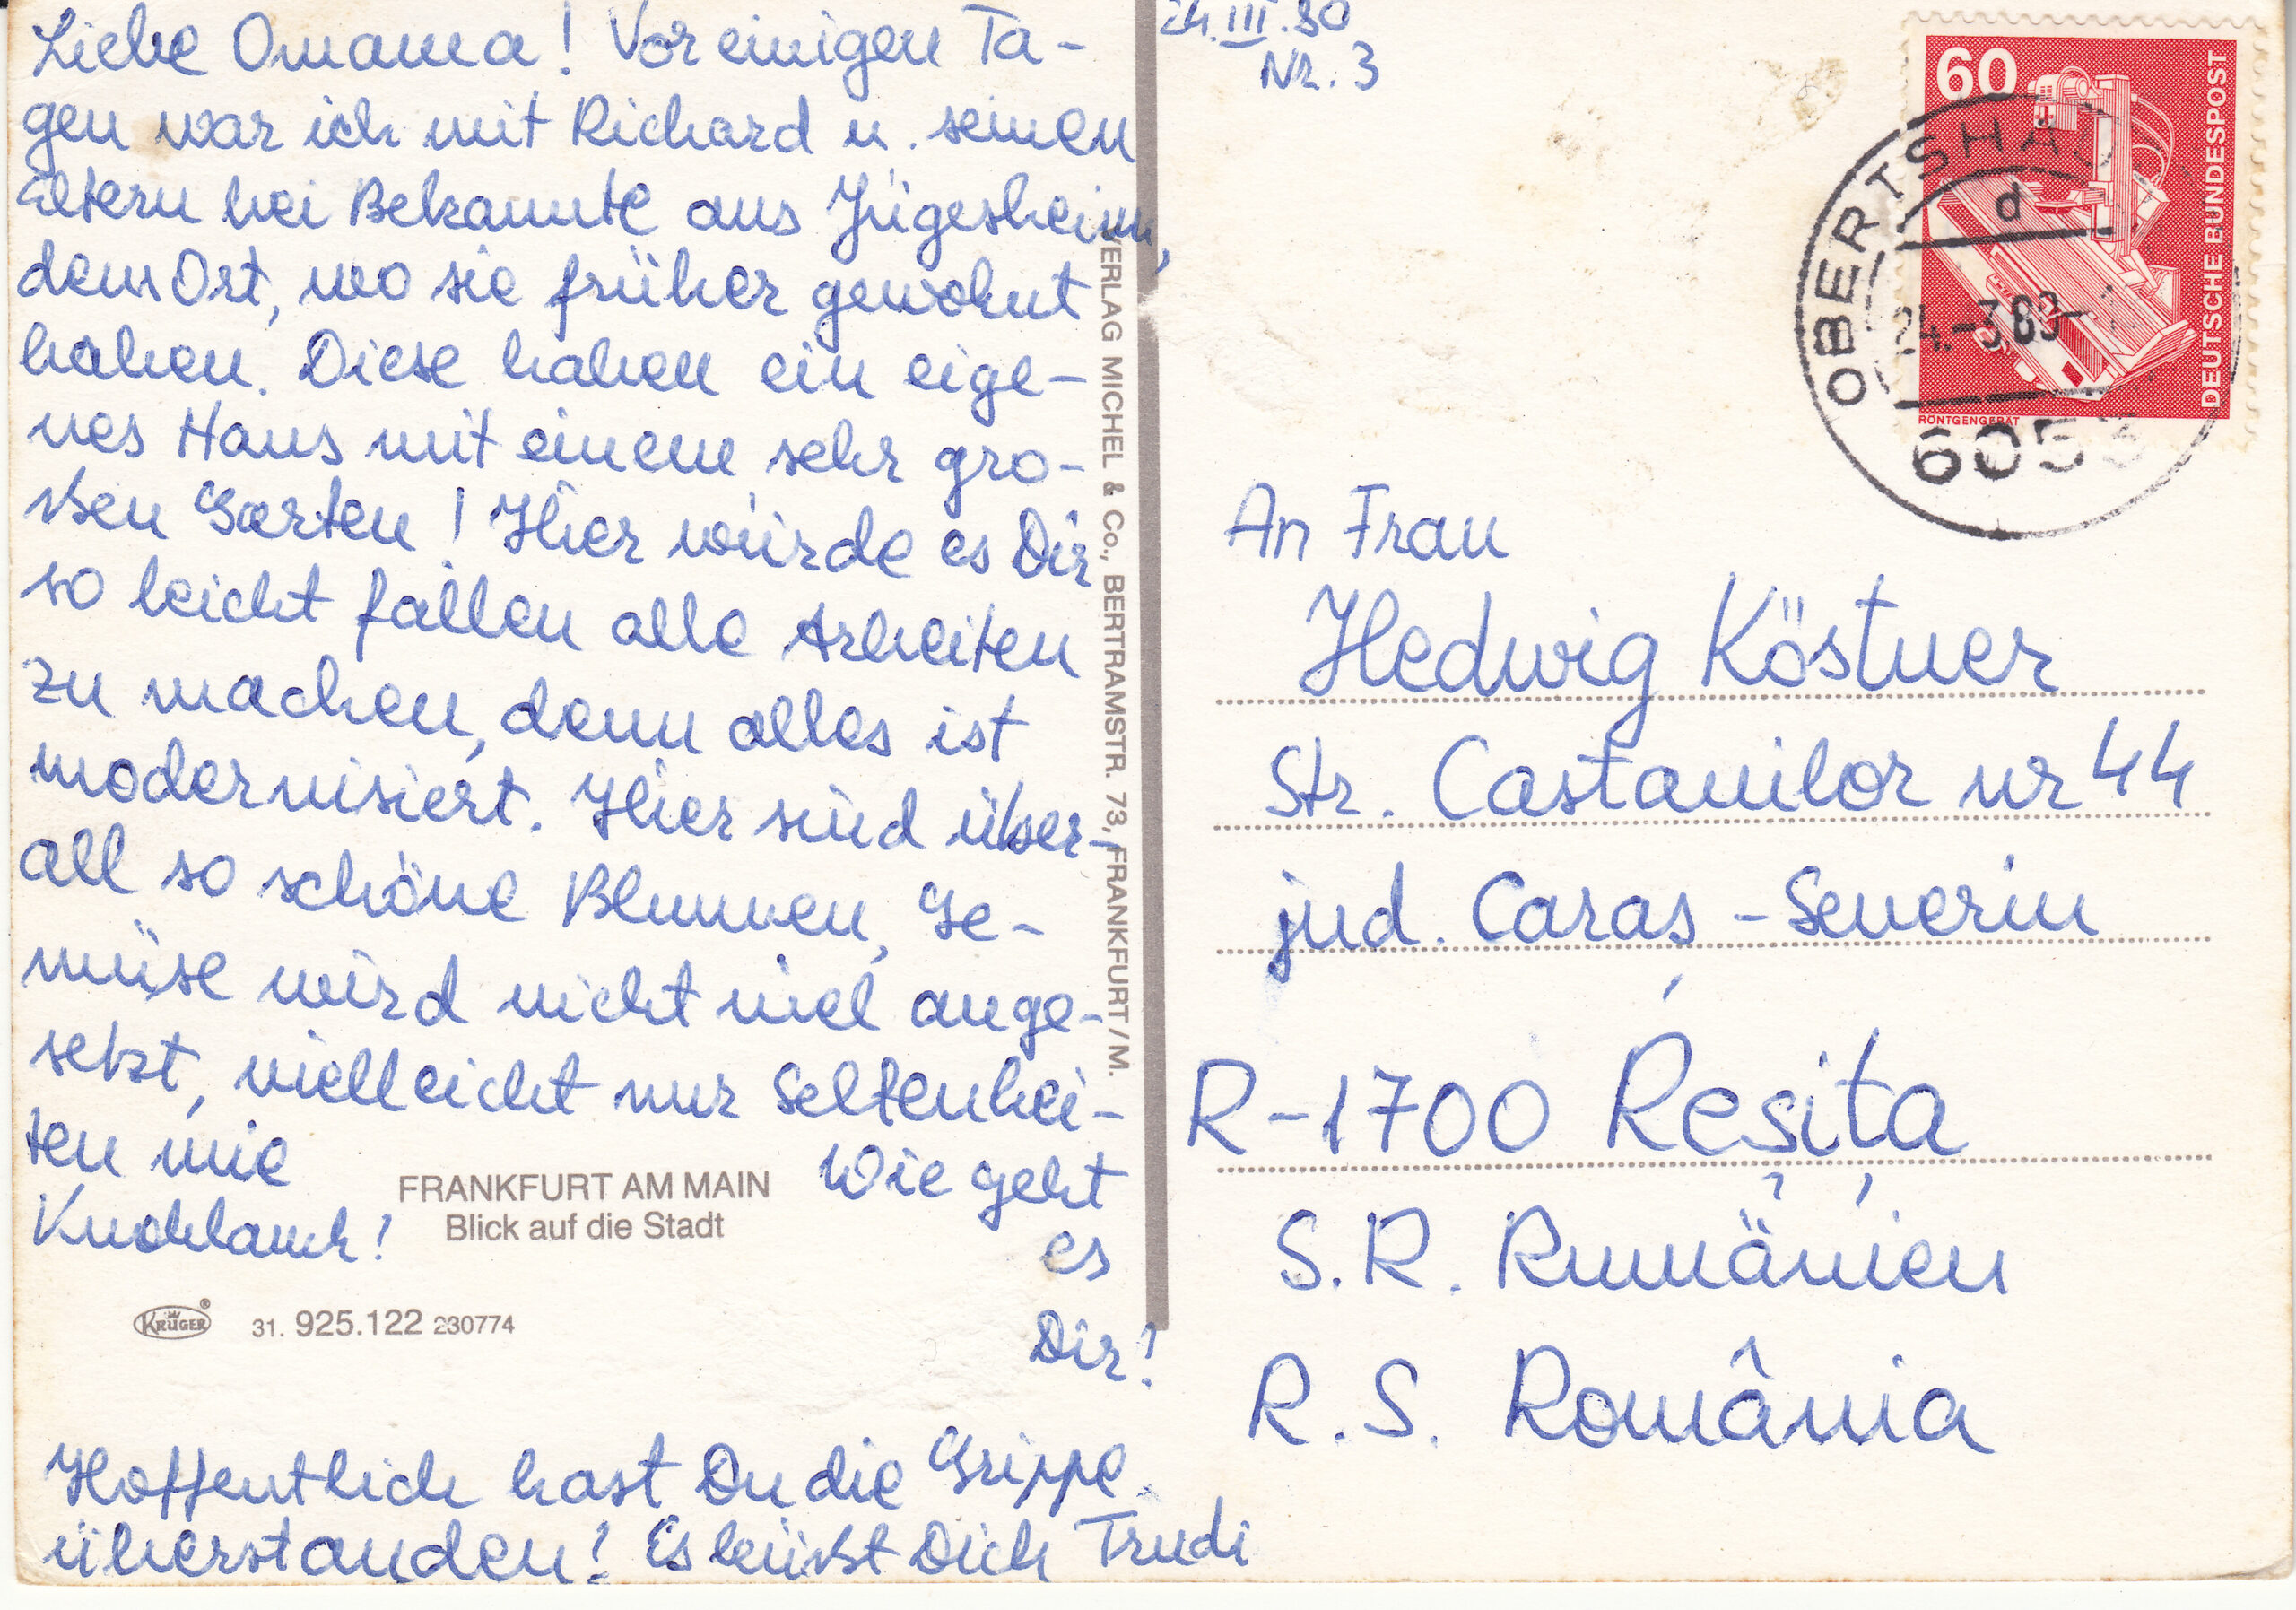 Liebe Omama! Vor einigen Ta-
gen war ich mit Richard u. seinen
Eltern bei Bekannte aus Jügesheim,
dem Ort, wo sie früher gewohnt
haben. Diese haben ein eige-
nes Haus mit einem sehr gro-
ßen Garten! Hier würde es Dir
so leicht fallen alle Arbeiten
zu machen, denn alles ist
modernisiert. Hier sind über-
all so schöne Blumen, Ge-
müse wird nicht viel ange-
setzt, vielleicht nur Seltenhei-
ten wie
Knoblauch!
Wie geht
es
Dir!
Hoffentlich hast Du die Grippe
überstanden! Es küßt Dich Trudi
FRANKFURT AM MAIN
Blick auf die Stadt
KRÜGER® 31. 925.122 230774
VERLAG MICHEL & Co., BERTRAMSTR. 73, FRANKFURT/M.
24.III.80
Nr. 3
60
DEUTSCHE BUNDESPOST
RÖNTGENGERÄT
OBERTSHAU
d
24.-3.80-
6053
An Frau
Hedwig Köstner
Str. Castanilor nr 44
jud. Caraș-Severin
R-1700 Reșița
S.R. Rumänien
R.S. România